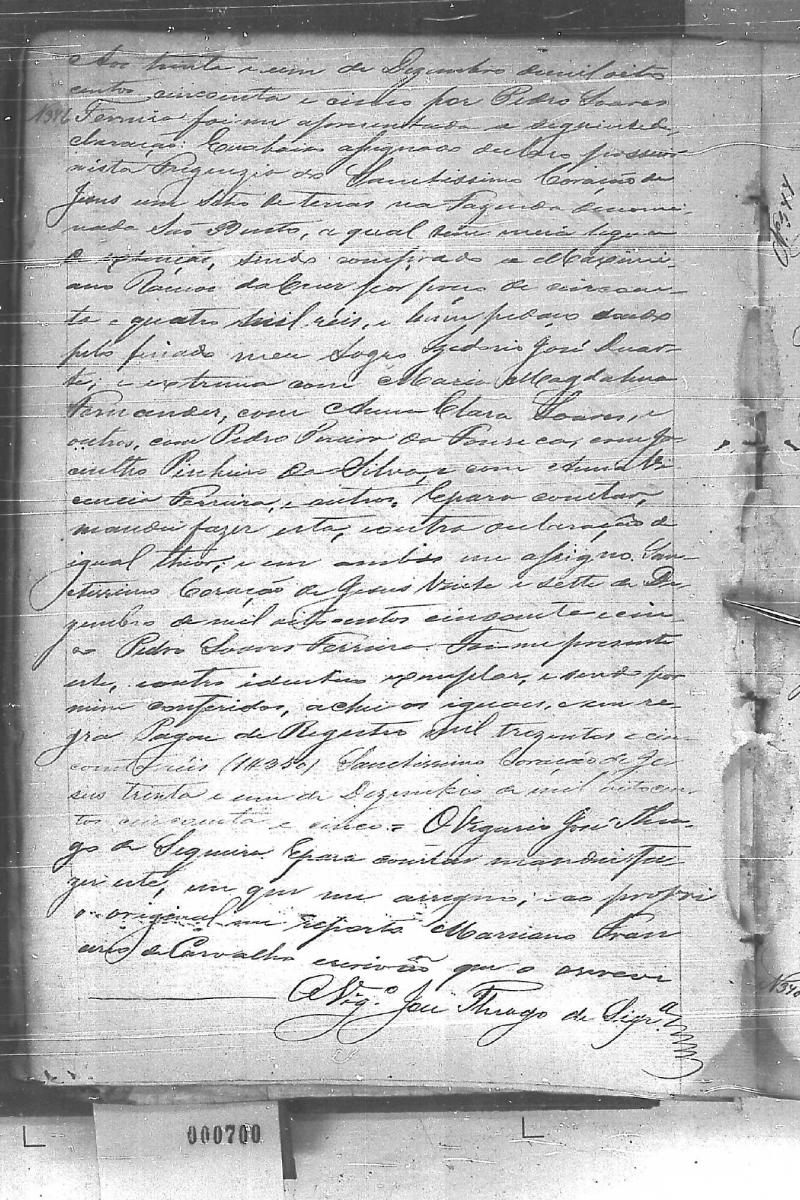 Aos trinta e um de Dezembro de mil oito
centos cincoenta e cinco por Pedro Soares
N346 Ferreira foi me apresentada a seguinte de
claração: Eu abaixo assignado declaro possuir
nesta Freguezia do Sanctissimo Coração de
Jesus um Sitio de terras na Fazenda denomi
nada São Bento, a qual tem meia legua
de extenção, sendo comprado a Maximi
ano Ramos da Cruz por preço de cincoen
ta e quatro mil réis, e hum pedaço doado
pelo finado meu Sogro Izedorio José Duar
te, e extrema com Maria Magdalena
Fernandes, com Anna Clara Soares, e
outros, com Pedro Pereira da Fonseca, com Ja
cintho Pinheiro da Silva, e com Anna Vi
cencia Ferreira, e outros. E para constar,
mandei fazer esta, e outra declaração de
igual theor, e em ambas me assigno. San
ctissimo Coração de Jesus Vinte e sette de De
zembro de mil oitocentos cincoenta e cin
co Pedro Soares Ferreira. Foi me presente
este, e outro identico exemplar, e sendo por
mim conferidos, achei os iguaes, e sem re
gra Pagou de Registro mil trezentos e cin
coenta réis (1#350) Sanctissimo Coração de Je
sus trinta e um de Dezembro de mil oitocen
tos cincoenta e cinco = O Vigario José Thia
go de Siqueira. E para constar mandei fa
zer este, em que me assigno; e ao propri
o original me reporto Marciano Fran
cisco de Carvalho escrivão que o escrevi
O Vig.º José Thiago de Siqr.ª
N348
000700